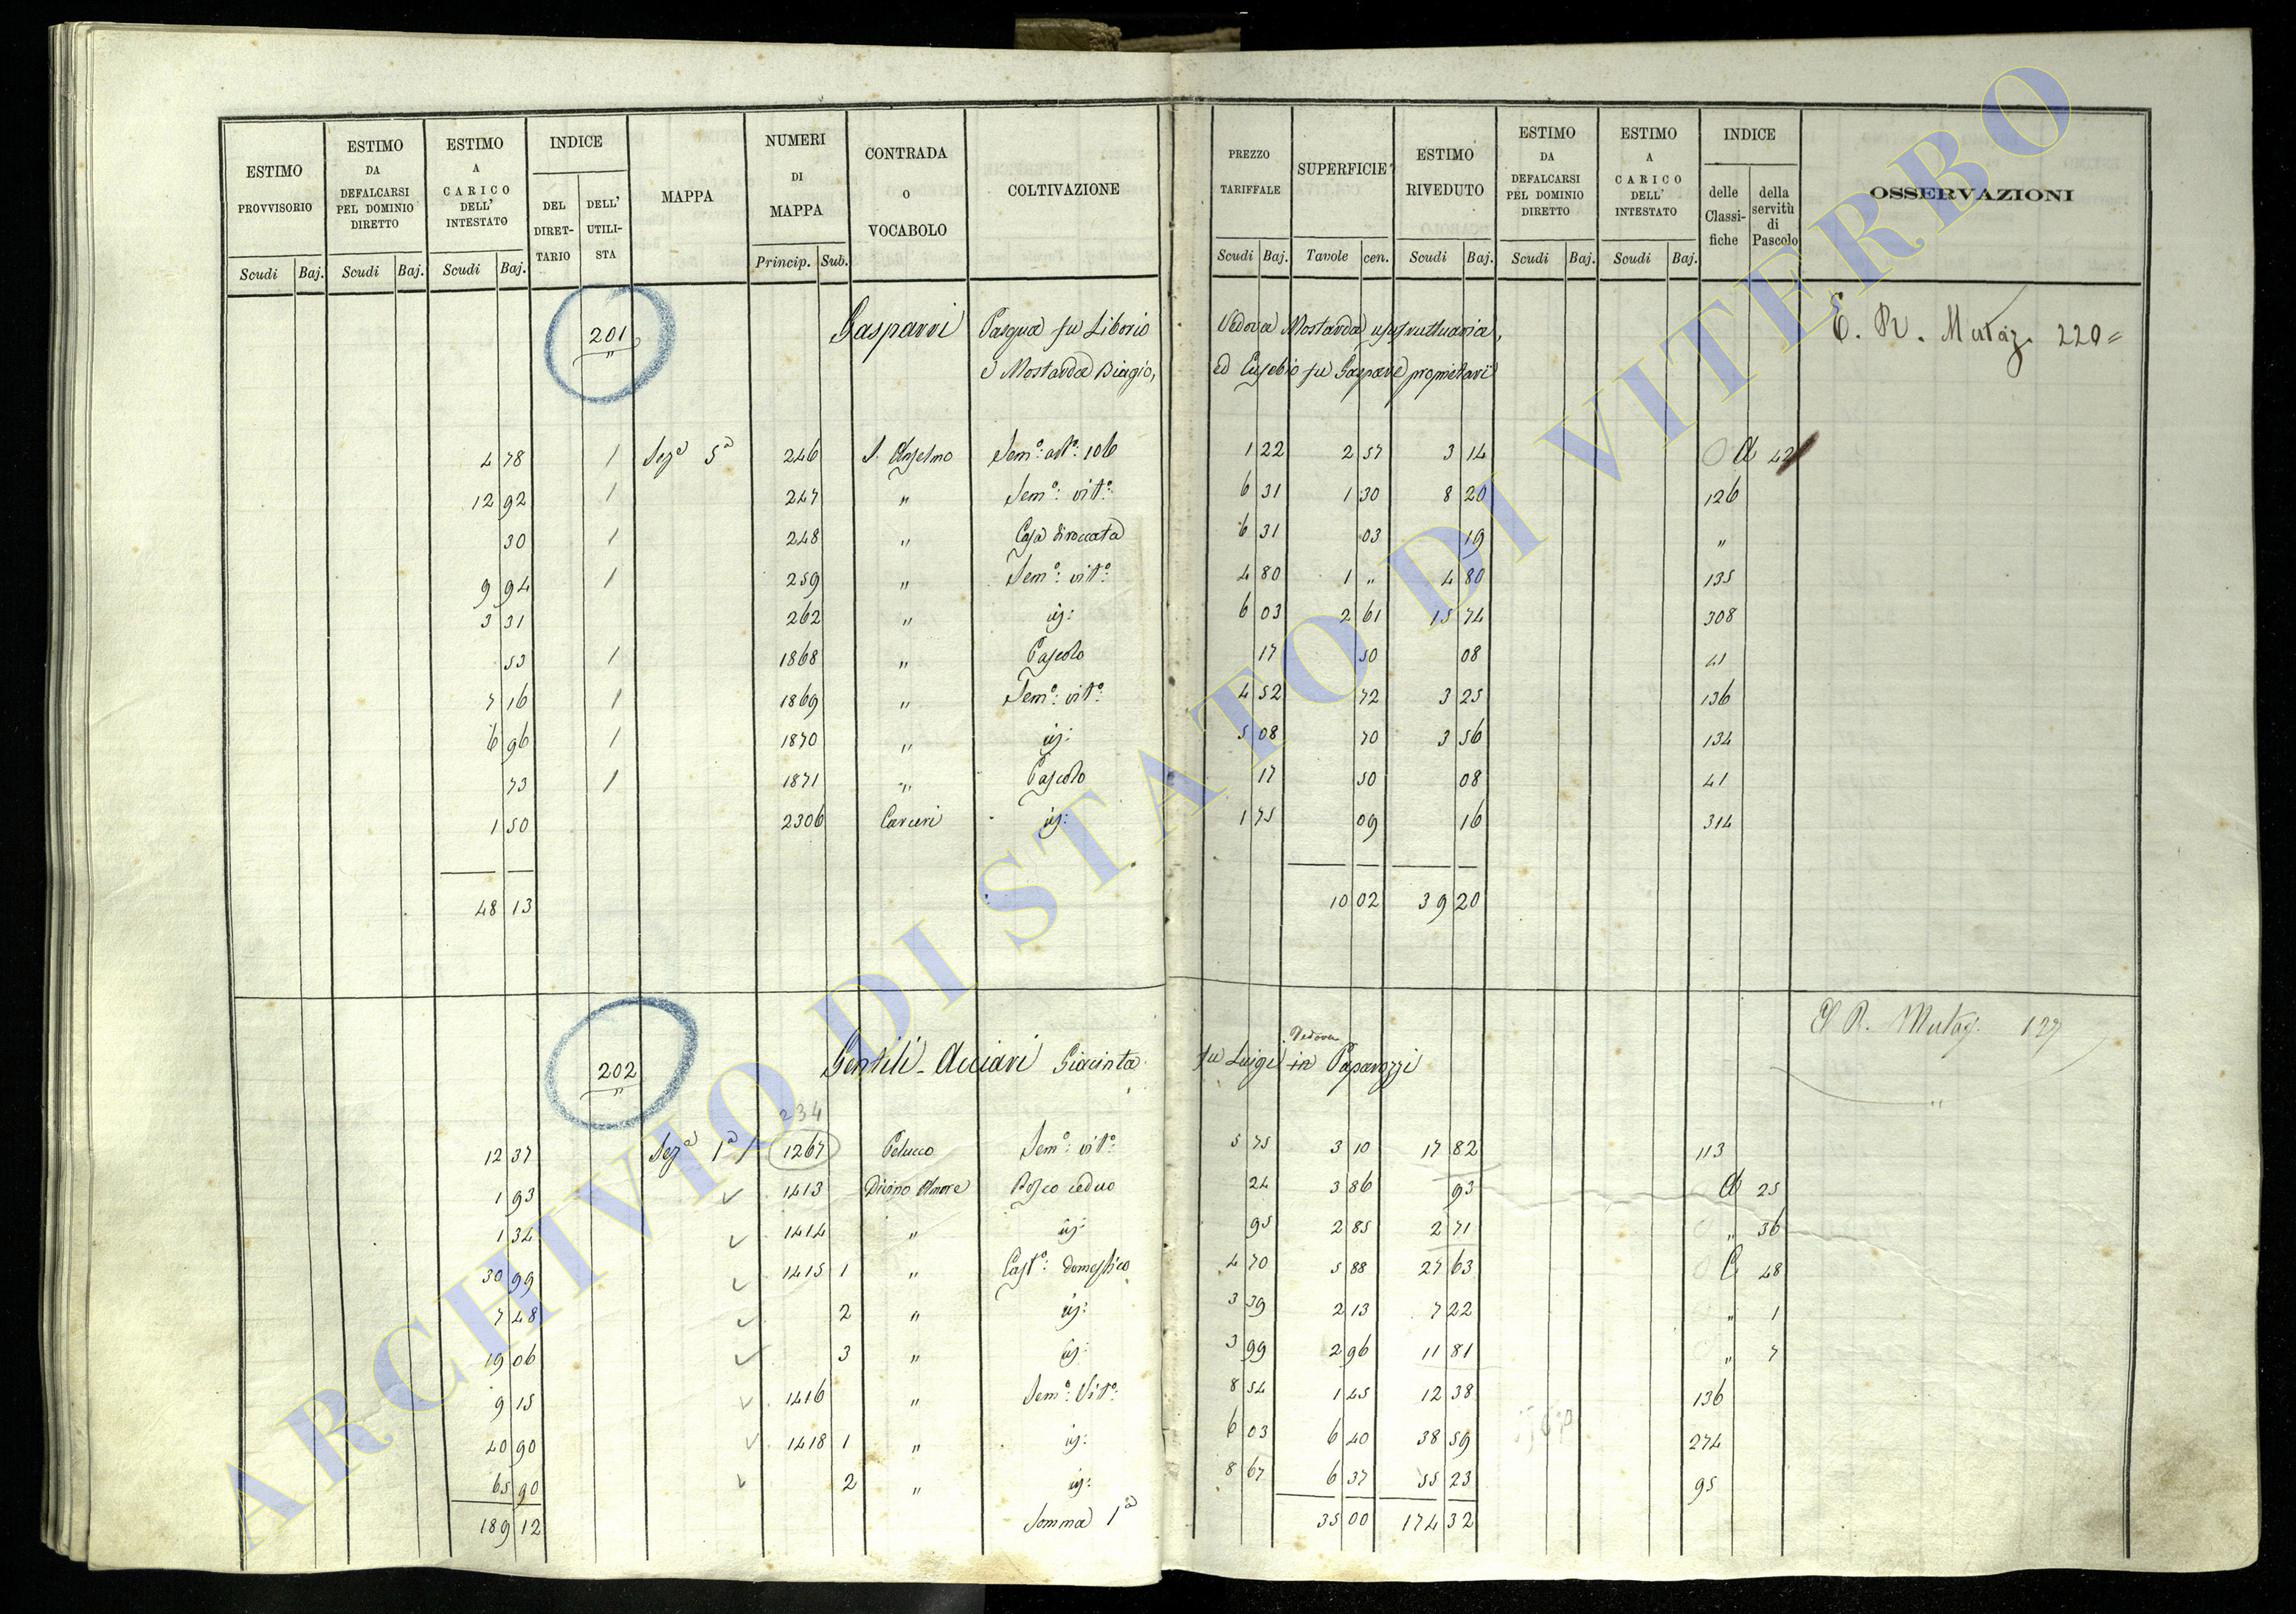 ESTIMO PROVVISORIO Scudi Baj.
ESTIMO DA DEFALCARSI PEL DOMINIO DIRETTO Scudi Baj.
ESTIMO A CARICO DELL' INTESTATO Scudi Baj.
INDICE DEL DIRET-TARIO DELL' UTILI-STA
MAPPA
NUMERI DI MAPPA Princip. Sub.
CONTRADA o VOCABOLO
COLTIVAZIONE
PREZZO TARIFFALE Scudi Baj.
SUPERFICIE Tavole cen.
ESTIMO RIVEDUTO Scudi Baj.
ESTIMO DA DEFALCARSI PEL DOMINIO DIRETTO Scudi Baj.
ESTIMO A CARICO DELL' INTESTATO Scudi Baj.
INDICE delle Classi-fiche della servitù di Pascolo
OSSERVAZIONI
201 Gasparri Pasqua fu Liborio Vedova Mostarda usufruttuaria, E. R. Mutaz. 220
" e Mostarda Biagio, ed Eusebio fu Gaspare proprietari
4 78 1 Sez.a 5a 246 S. Anselmo Sem.o art.o 106 1 22 2 57 3 14 A 42
12 92 1 247 " Sem.o vit.o 6 31 1 30 8 20 126
30 1 248 " Casa diroccata 6 31 03 19 "
9 94 1 259 " Sem.o vit.o 4 80 1 " 4 80 135
3 31 262 " id: 6 03 2 61 15 74 308
53 1 1868 " Pascolo 17 50 08 41
7 16 1 1869 " Sem.o vit.o 4 52 72 3 25 136
6 96 1 1870 " id: 5 08 70 3 56 134
73 1 1871 " Pascolo 17 50 08 41
1 50 2306 Carceri id: 1 75 09 16 314
48 13 10 02 39 20
202 Gentili-Acciari Giacinta fu Luigi in Vedova Paparozzi R. Mutaz. 127
" "
234
12 37 Sez.a 1a 1 1267 Pelucco Sem.o vit.o 5 75 3 10 17 82 113
1 93 1413 Divino Amore Bosco ceduo 24 3 86 93 A 25
1 34 1414 " id: 95 2 85 2 71 " 36
30 99 1415 1 " Cast.o domestico 4 70 5 88 27 63 C 48
7 48 2 " id: 3 39 2 13 7 22 " 1
19 06 3 " id: 3 99 2 96 11 81 " 7
9 15 1416 " Sem.o Vit.o 8 54 1 45 12 38 136
40 90 1418 1 " id: 6 03 6 40 38 59 274
65 90 2 " id: 8 67 6 37 55 23 95
189 12 Somma 1a 35 00 174 32
ARCHIVIO DI STATO DI VITERBO